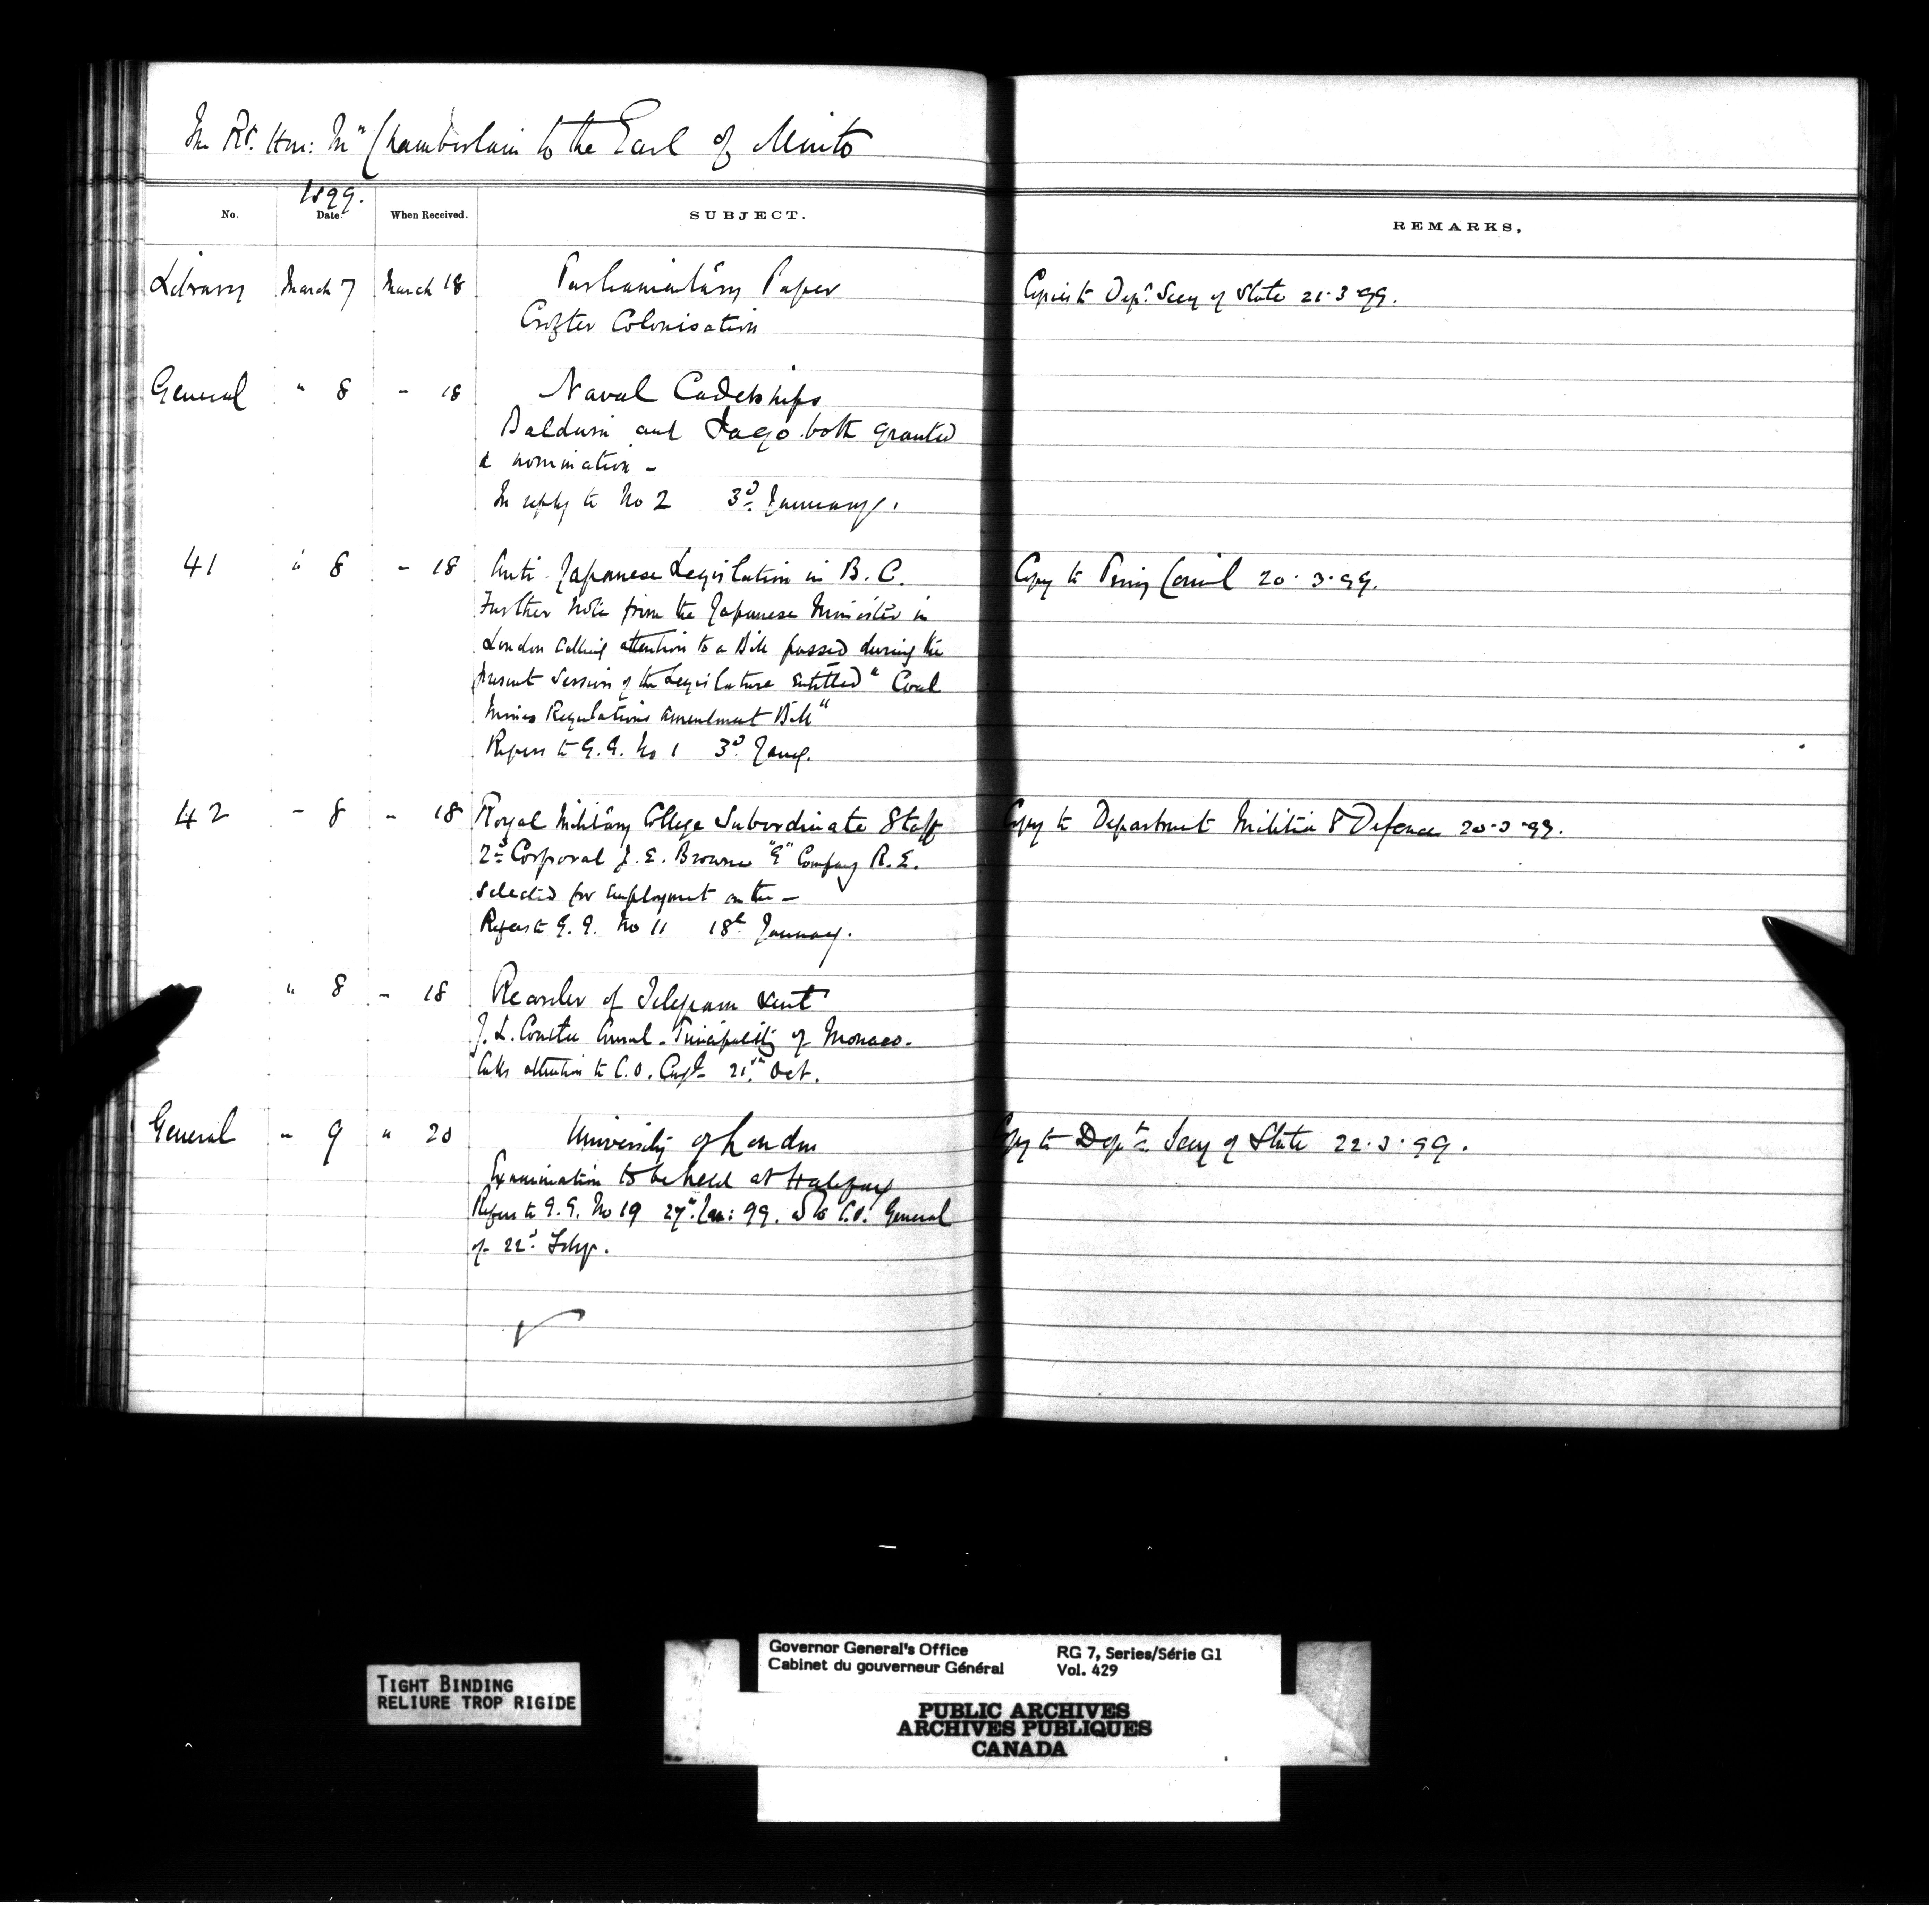 The Rt. Hon: Mr Chamberlain to the Earl of Minto
1899.
No. Date. When Received. SUBJECT. REMARKS.
Library March 7 March 18 Parliamentary Paper Copies to Dept. Secy of State 21.3.99.
Crofter Colonisation
General " 8 - 18 Naval Cadetships
Baldwin and Jago both granted
a nomination -
In reply to No 2 3d January.
41 " 8 - 18 Anti Japanese Legislation in B.C. Copy to Privy Council 20.3.99.
Further Note from the Japanese Minister in
London calling attention to a Bill passed during the
present Session of the Legislature entitled "Coal
Mines Regulations Amendment Bill"
Refers to G.G. No 1 3d Jany.
42 - 8 - 18 Royal Military College Subordinate Staff Copy to Department Militia & Defence 20.3.99.
2nd Corporal J.E. Browne "G" Company R.E.
selected for employment on the -
Refers to G.G. No 11 18th January.
" 8 - 18 Reorder of Telegram sent
J.L. Consul - Principality of Monaco.
Calls attention to C.O. 21st Oct.
General " 9 " 20 University of London Copy to Dept. Secy of State 22.3.99.
Examination to be held at Halifax
Refers to G.G. No 19 27th Jan: 99. & to C.O. General
of 22d Feby.
TIGHT BINDING
RELIURE TROP RIGIDE
Governor General's Office RG 7, Series/Série G1
Cabinet du gouverneur Général Vol. 429
PUBLIC ARCHIVES
ARCHIVES PUBLIQUES
CANADA